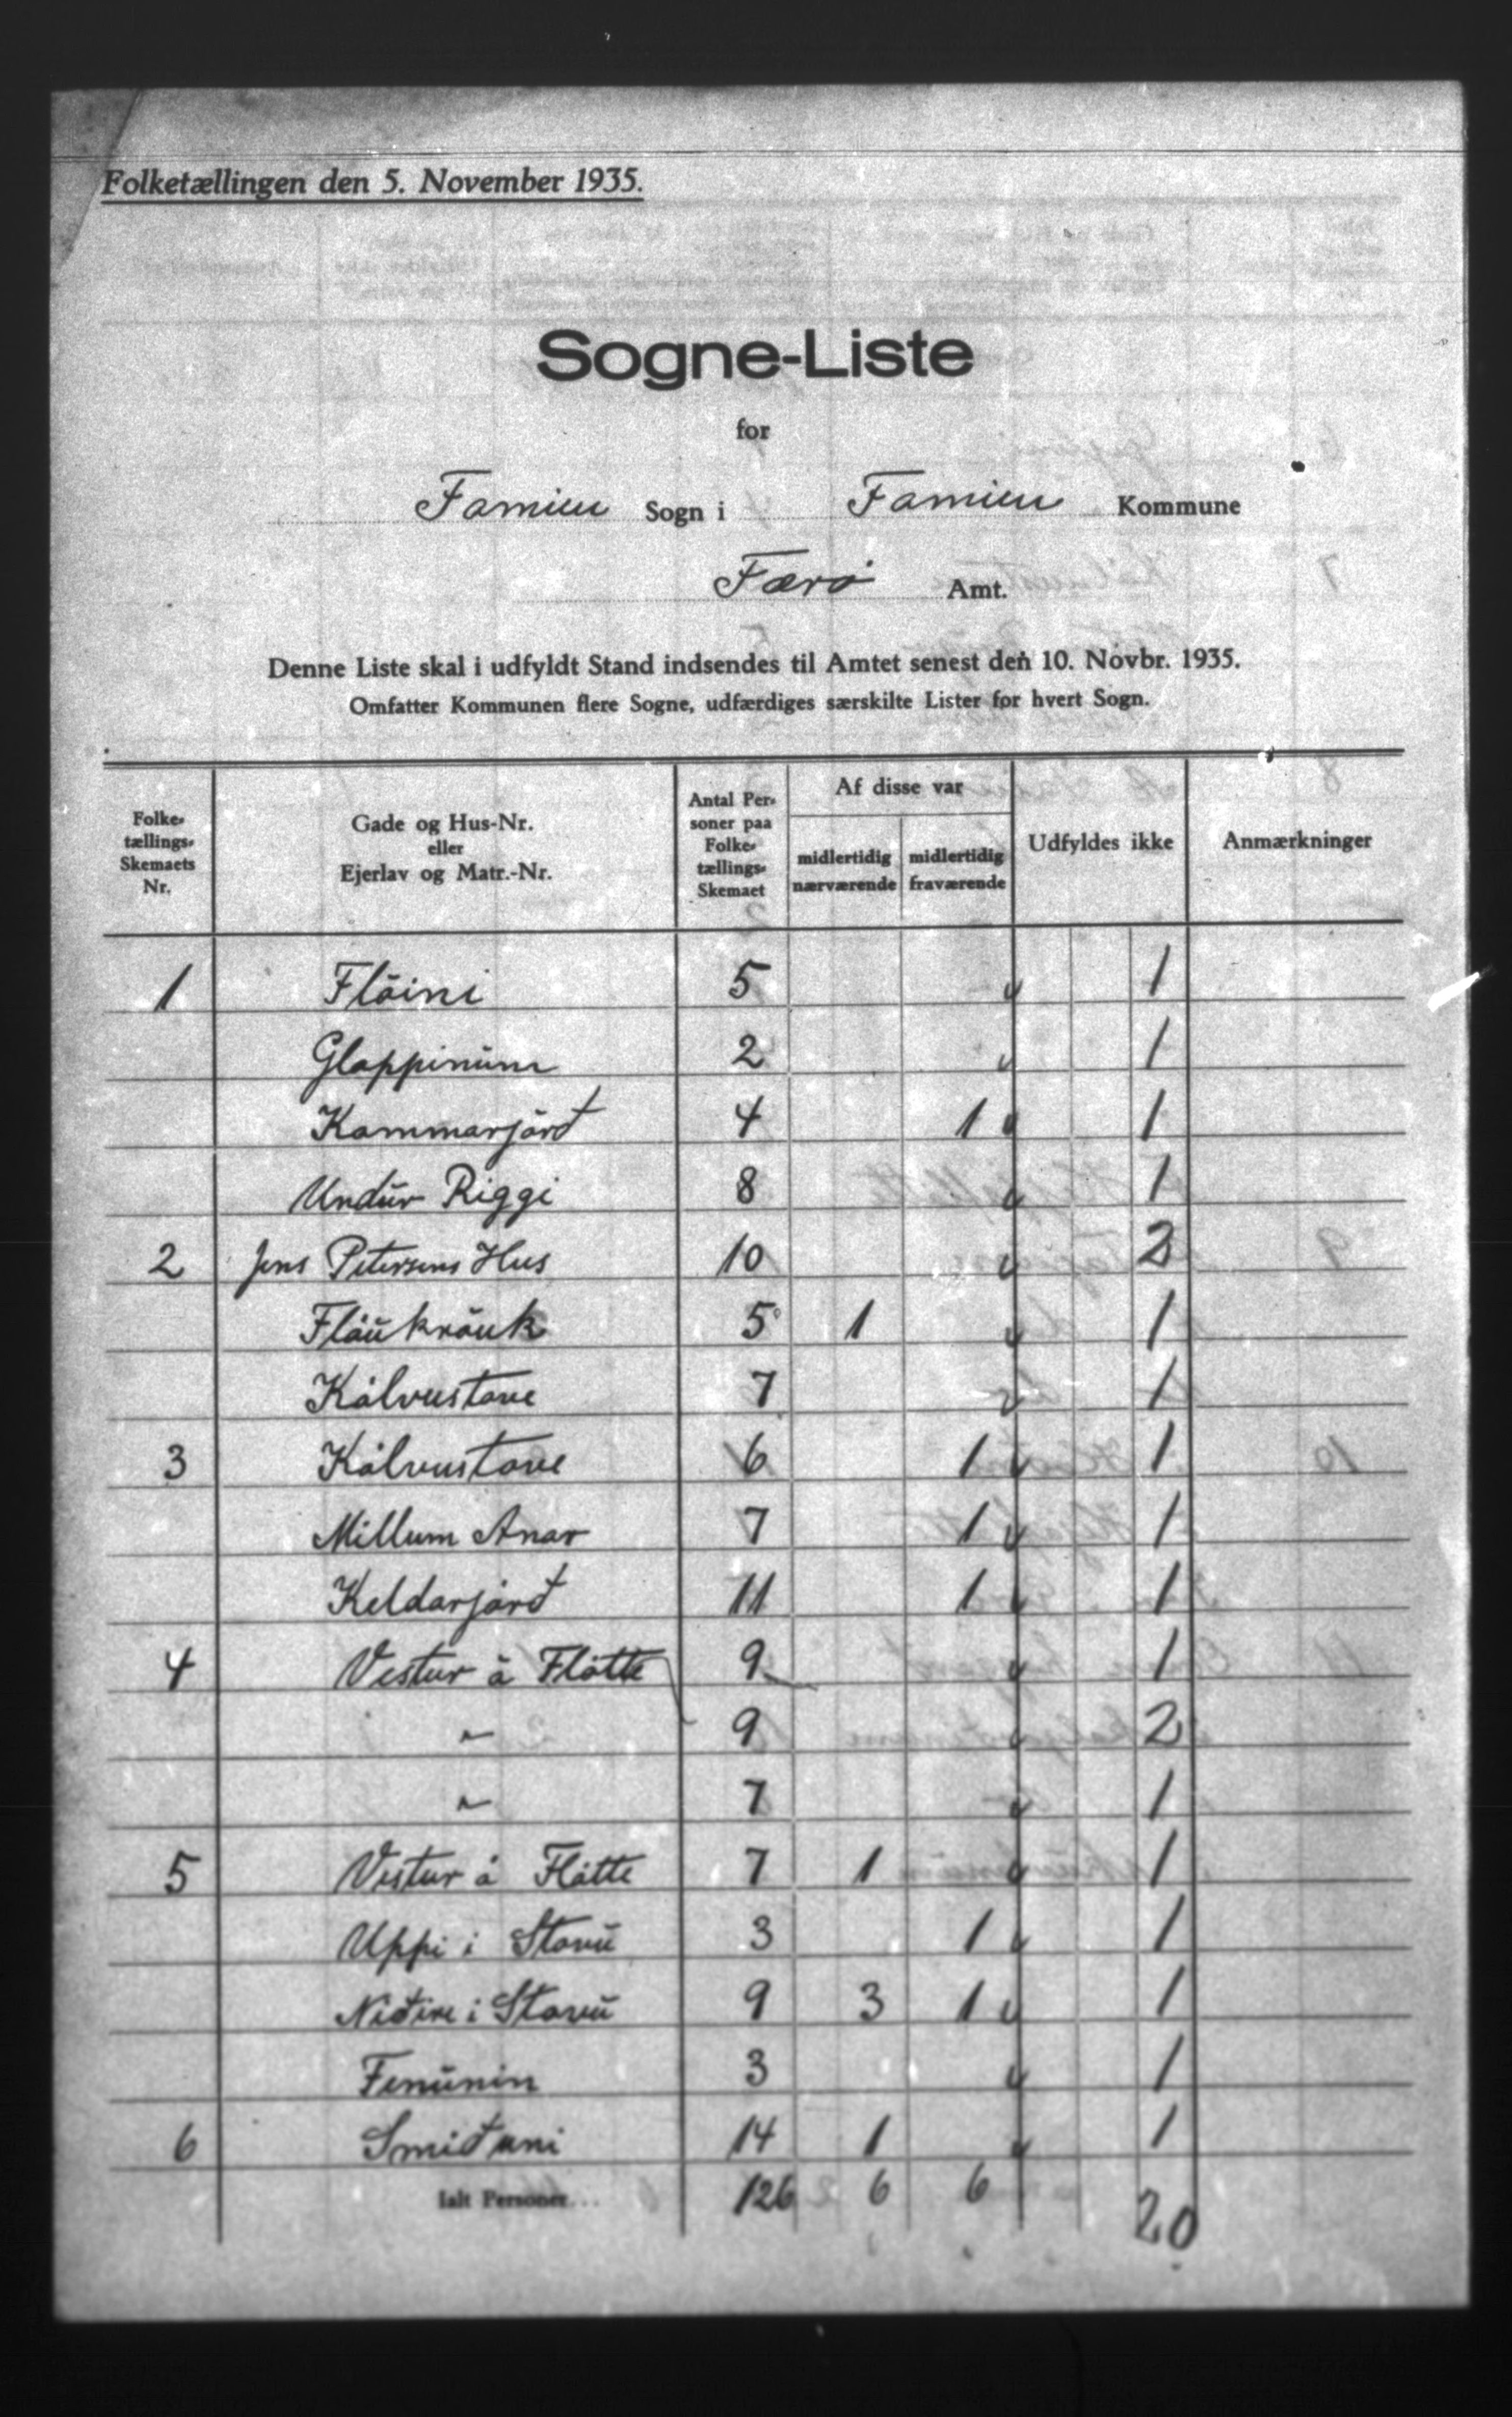 Folketællingen den 5. November 1935.
Sogne-Liste
for
Famien Sogn i Famien Kommune
Færø Amt.
Denne Liste skal i udfyldt Stand indsendes til Amtet senest den 10. Novbr. 1935.
Omfatter Kommunen flere Sogne, udfærdiges særskilte Lister for hvert Sogn.
Folke-
tællings-
Skemaets
Nr.
Gade og Hus-Nr.
eller
Ejerlav og Matr.-Nr.
Antal Per-
soner paa
Folke-
tællings-
Skemaet
Af disse var
midlertidig
nærværende
midlertidig
fraværende
Udfyldes ikke
Anmærkninger
1 Flöini 5 1
Glappinum 2 1
Kammarjörð 4 1 1
Undur Riggi 8 1
2 Jens Petersens Hus 10 2
Fläukräuk 5 1 1
Kålvustove 7 1
3 Kålvustove 6 1 1
Millum Anar 7 1 1
Keldarjörð 11 1 1
4 Vestur å Fløtte 9 1
" 9 2
" 7 1
5 Vestur å Fløtte 7 1 1
Uppi i Stovu 3 1 1
Niðire i Stovu 9 3 1 1
Fenunin 3 1
6 Smiðuni 14 1 1
Ialt Personer... 126 6 6 20